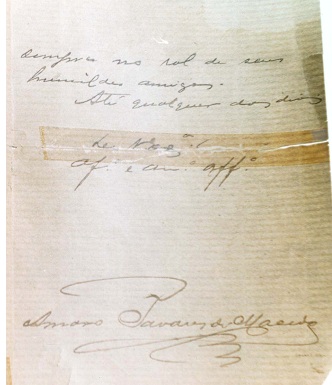 sempre no rol de seus
humildes amigos.
Até qualquer dos dias
De V.
af.º e am.º aff.º
Amaro Tavares de Macedo